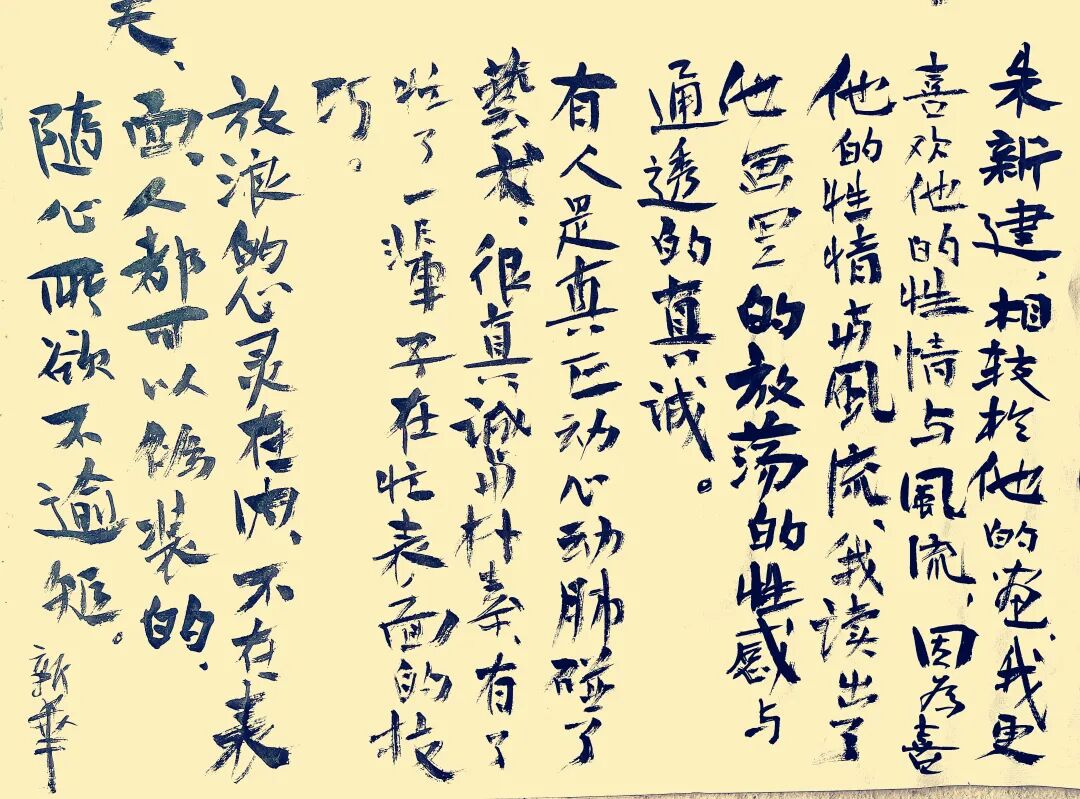 朱新建，相较于他的画，我更
喜欢他的性情与風流，因為喜
他的性情与風流，我读出了
他画里的放荡的性感与
通透的真诚。
有人是真正动心动肺碰了
藝术，很真诚与朴素，有了
忙了一辈子在忙表面的技
巧。
放浪的心灵在内，不在表
面，人都可以伪装的，
随心所欲不逾矩。
新華